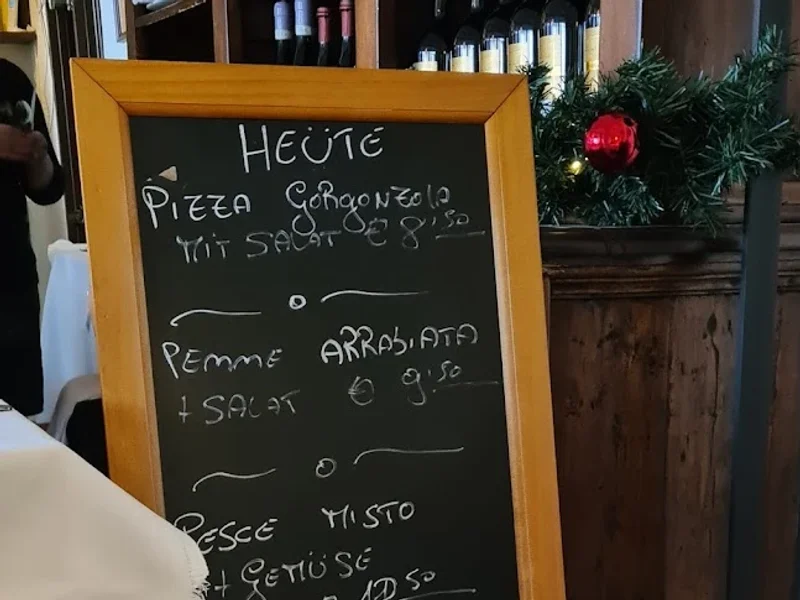 HEÜTE
PIZZA GORGONZOLA
MIT SALAT € 8,50
PEMME ARRABIATA
+ SALAT € 9,50
PESCE MISTO
+ GEMÜSE
12 50